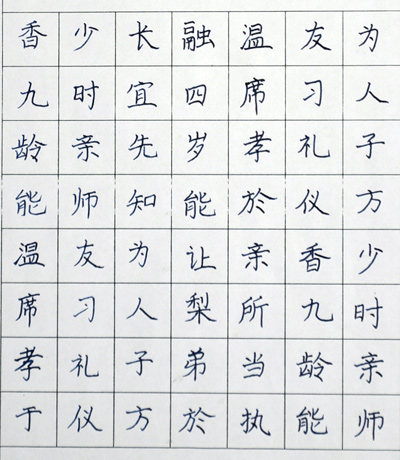 香少长融温友为
九时宜四席习人
龄亲先岁孝礼子
能师知能於仪方
温友为让亲香少
席习人梨所九时
孝礼子弟当龄亲
于仪方於执能师